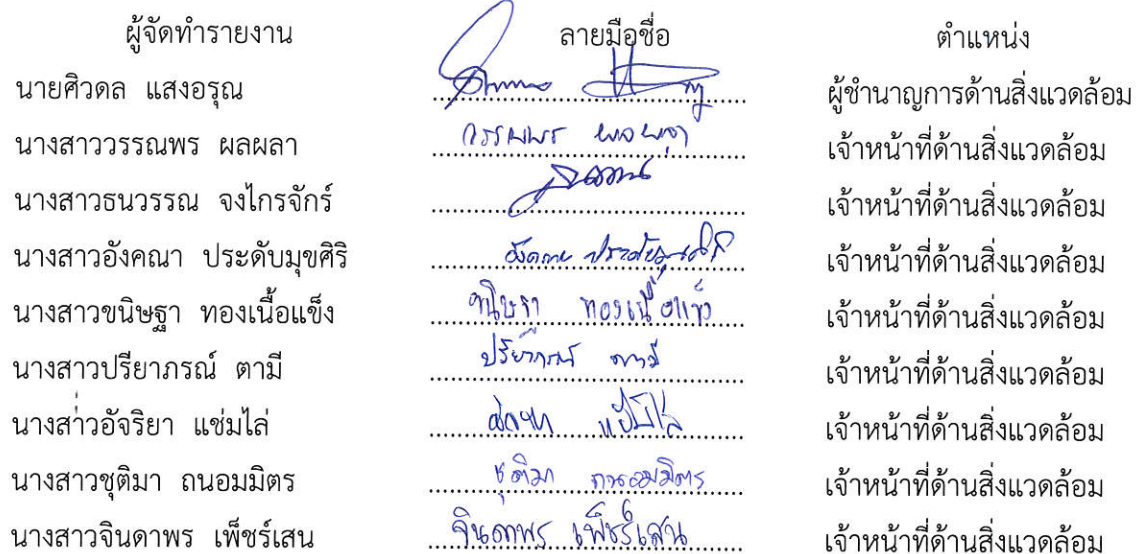 ผู้จัดทำรายงาน ลายมือชื่อ ตำแหน่ง
นายศิวดล แสงอรุณ ผู้ชำนาญการด้านสิ่งแวดล้อม
นางสาววรรณพร ผลผลา วรรณพร ผลผลา เจ้าหน้าที่ด้านสิ่งแวดล้อม
นางสาวธนวรรณ จงไกรจักร์ เจ้าหน้าที่ด้านสิ่งแวดล้อม
นางสาวอังคณา ประดับมุขศิริ อังคณา ประดับมุขศิริ เจ้าหน้าที่ด้านสิ่งแวดล้อม
นางสาวขนิษฐา ทองเนื้อแข็ง ขนิษฐา ทองเนื้อแข็ง เจ้าหน้าที่ด้านสิ่งแวดล้อม
นางสาวปรียาภรณ์ ตามี ปรียาภรณ์ ตามี เจ้าหน้าที่ด้านสิ่งแวดล้อม
นางสาวอัจริยา แช่มไล่ แช่มไล่ เจ้าหน้าที่ด้านสิ่งแวดล้อม
นางสาวชุติมา ถนอมมิตร ชุติมา ถนอมมิตร เจ้าหน้าที่ด้านสิ่งแวดล้อม
นางสาวจินดาพร เพ็ชร์เสน จินดาพร เพ็ชร์เสน เจ้าหน้าที่ด้านสิ่งแวดล้อม